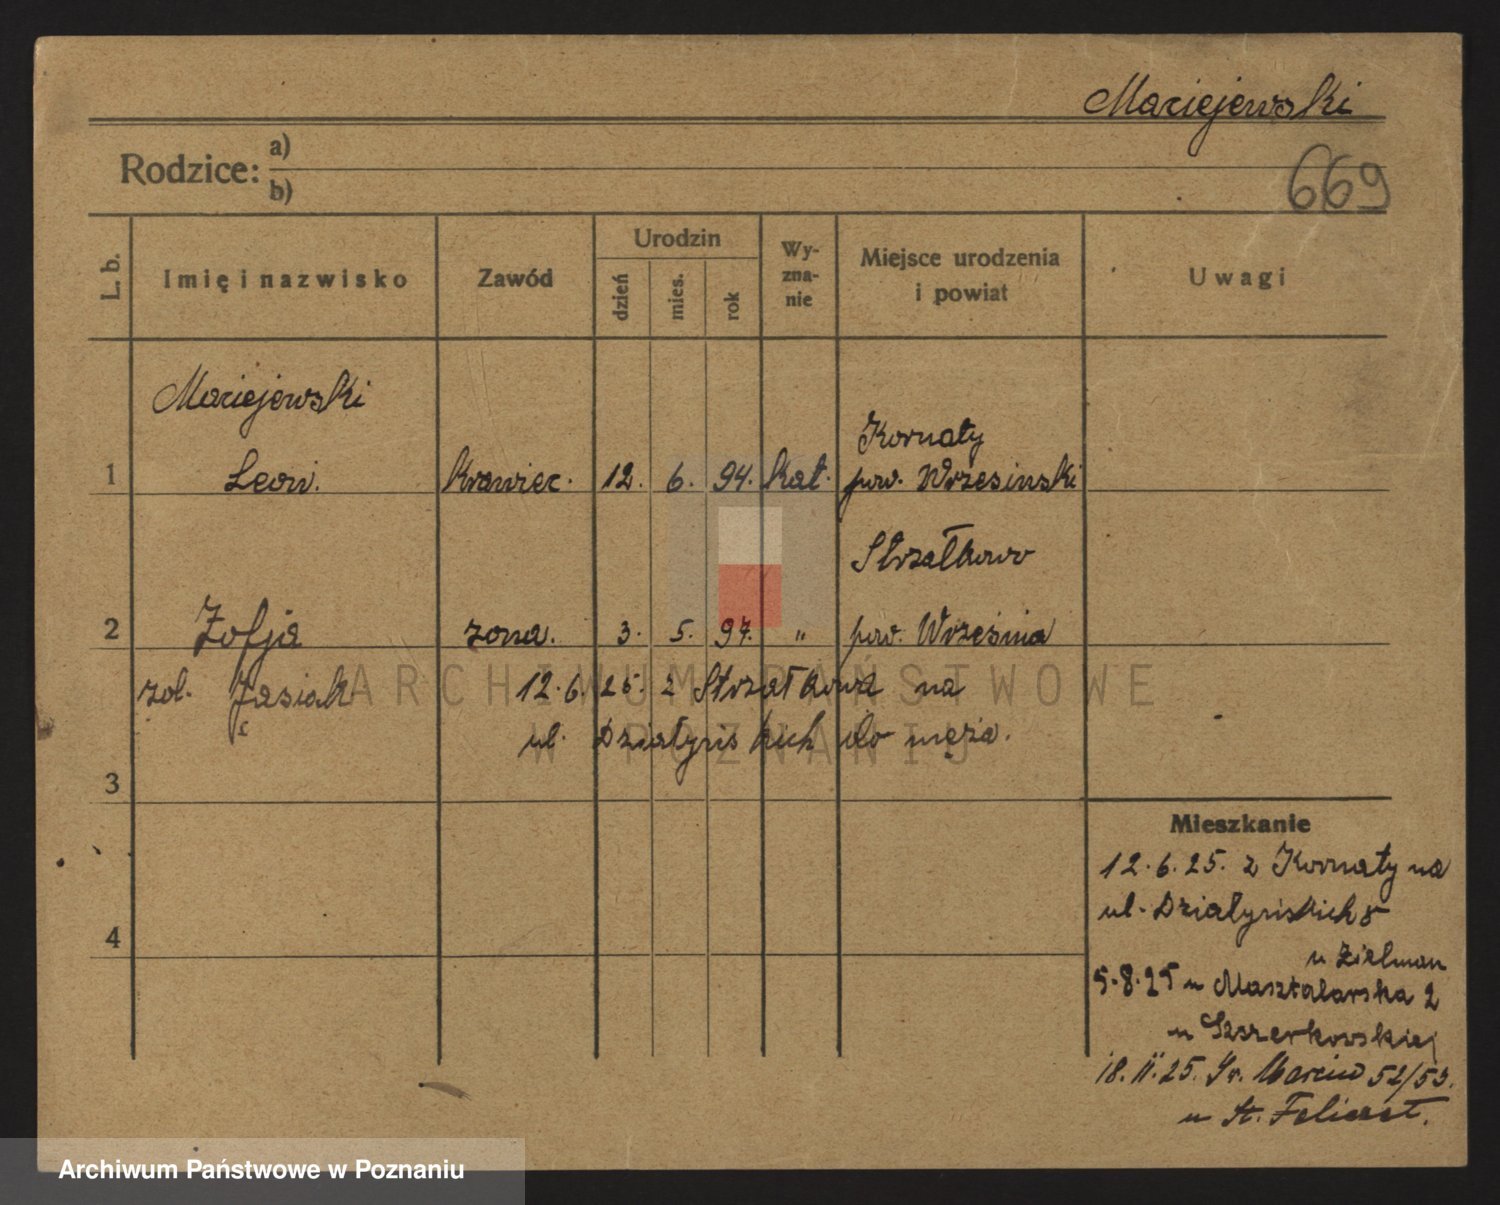 Maciejewski
669
Rodzice: a)
b)
L. b.
Imię i nazwisko
Zawód
Urodzin
dzień
mies.
rok
Wy-
zna-
nie
Miejsce urodzenia
i powiat
Uwagi
Maciejewski
Kornaty
1 Leon. krawiec. 12. 6. 94. kat. pow. Wrzesinski
Strzałkowo
2 Zofja żona. 3. 5. 97. " pow. Września
zol. Jasiak 12.6. 25. z Strzałkowa na
ul. Działyńskich do męża.
3
4
Mieszkanie
12.6.25. z Kornaty na
ul. Działyńskich 8
u Zielman
5.8.25 u Masztalarska 2
u Szszerkowskiej
18.11.25. Św. Marcin 52/53.
u St. Feliczt.
ARCHIWUM PAŃSTWOWE
W POZNANIU
Archiwum Państwowe w Poznaniu